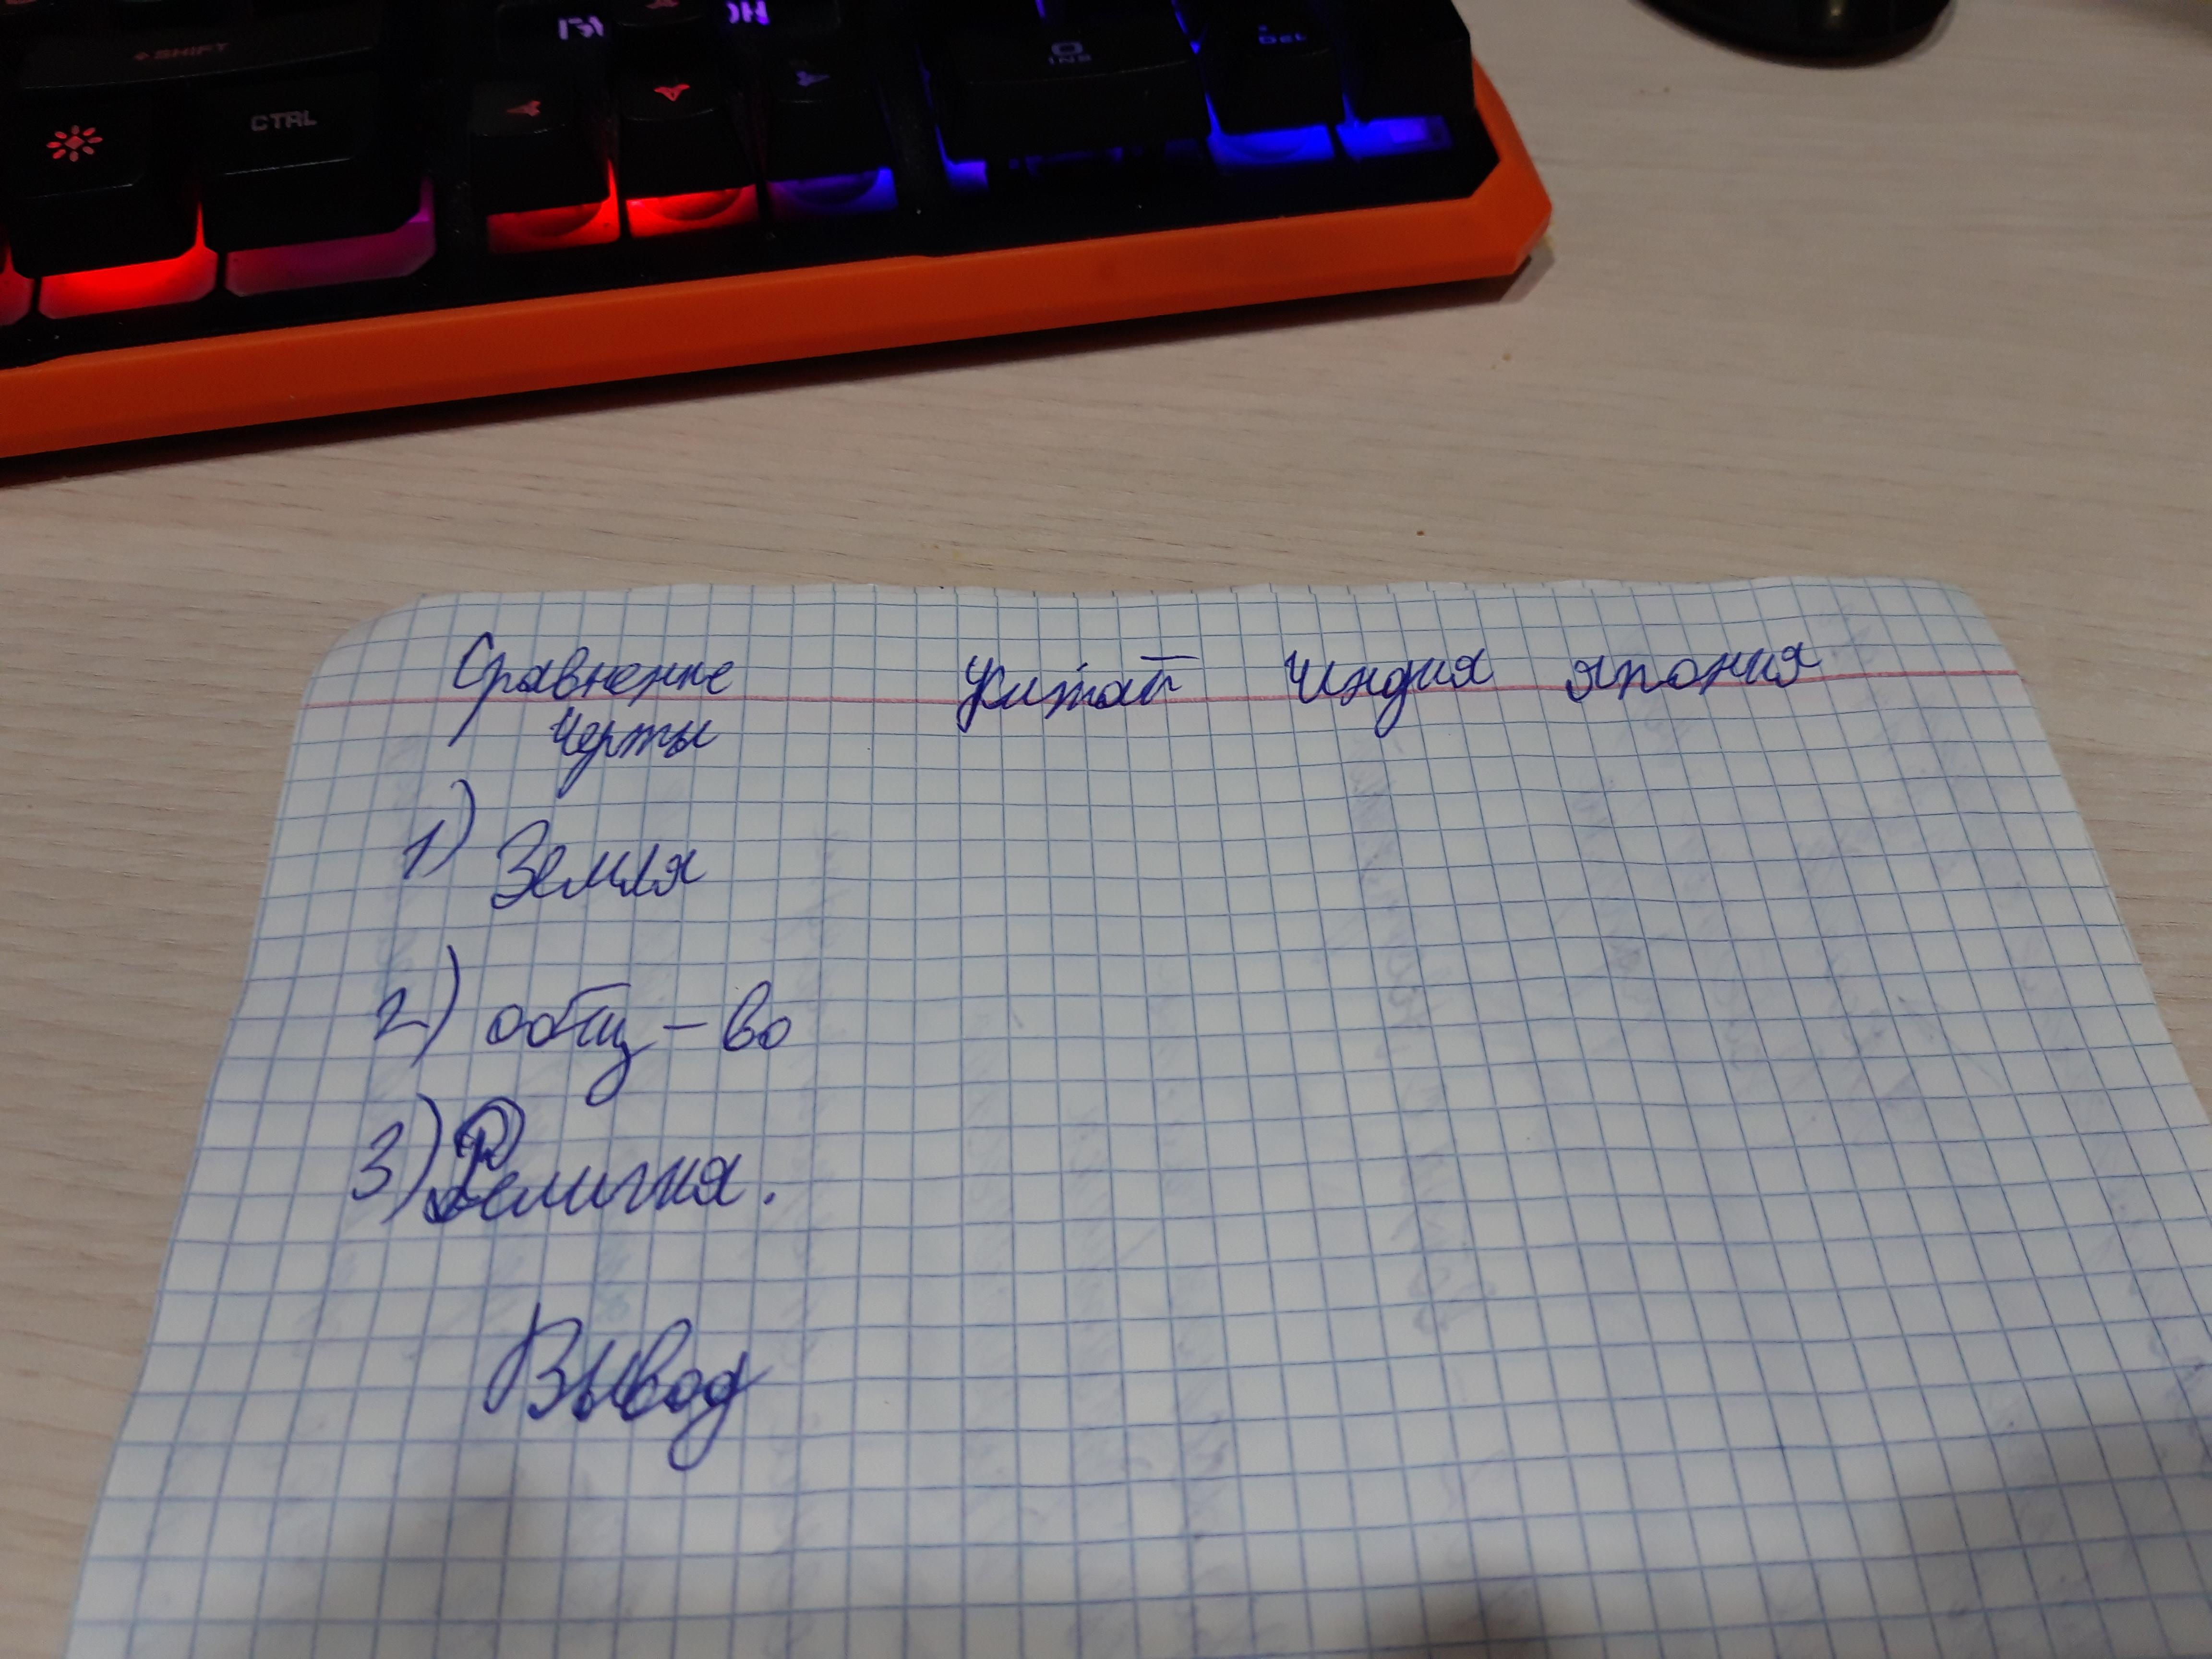 SHIFT
CTRL
0
INS
DEL
Сравнение Китай Индия Япония
черты
1) Земля
2) общ-во
3) Религия.
Вывод